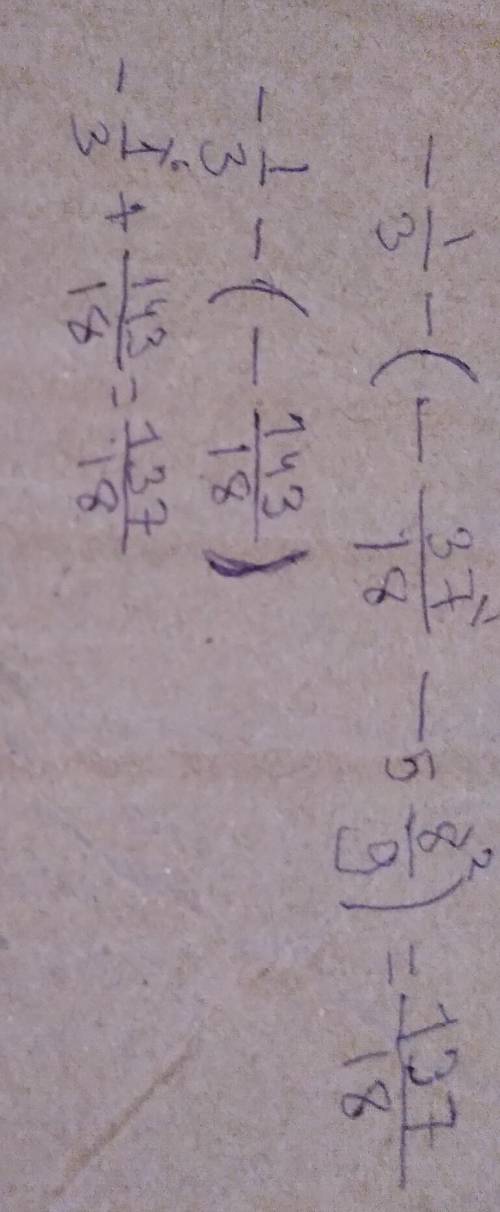 -1/3 - (- 37/18^1 - 5 8/9^2) = 137/18
-1/3 - (- 143/18)
-1/3^6 + 143/18 = 137/18